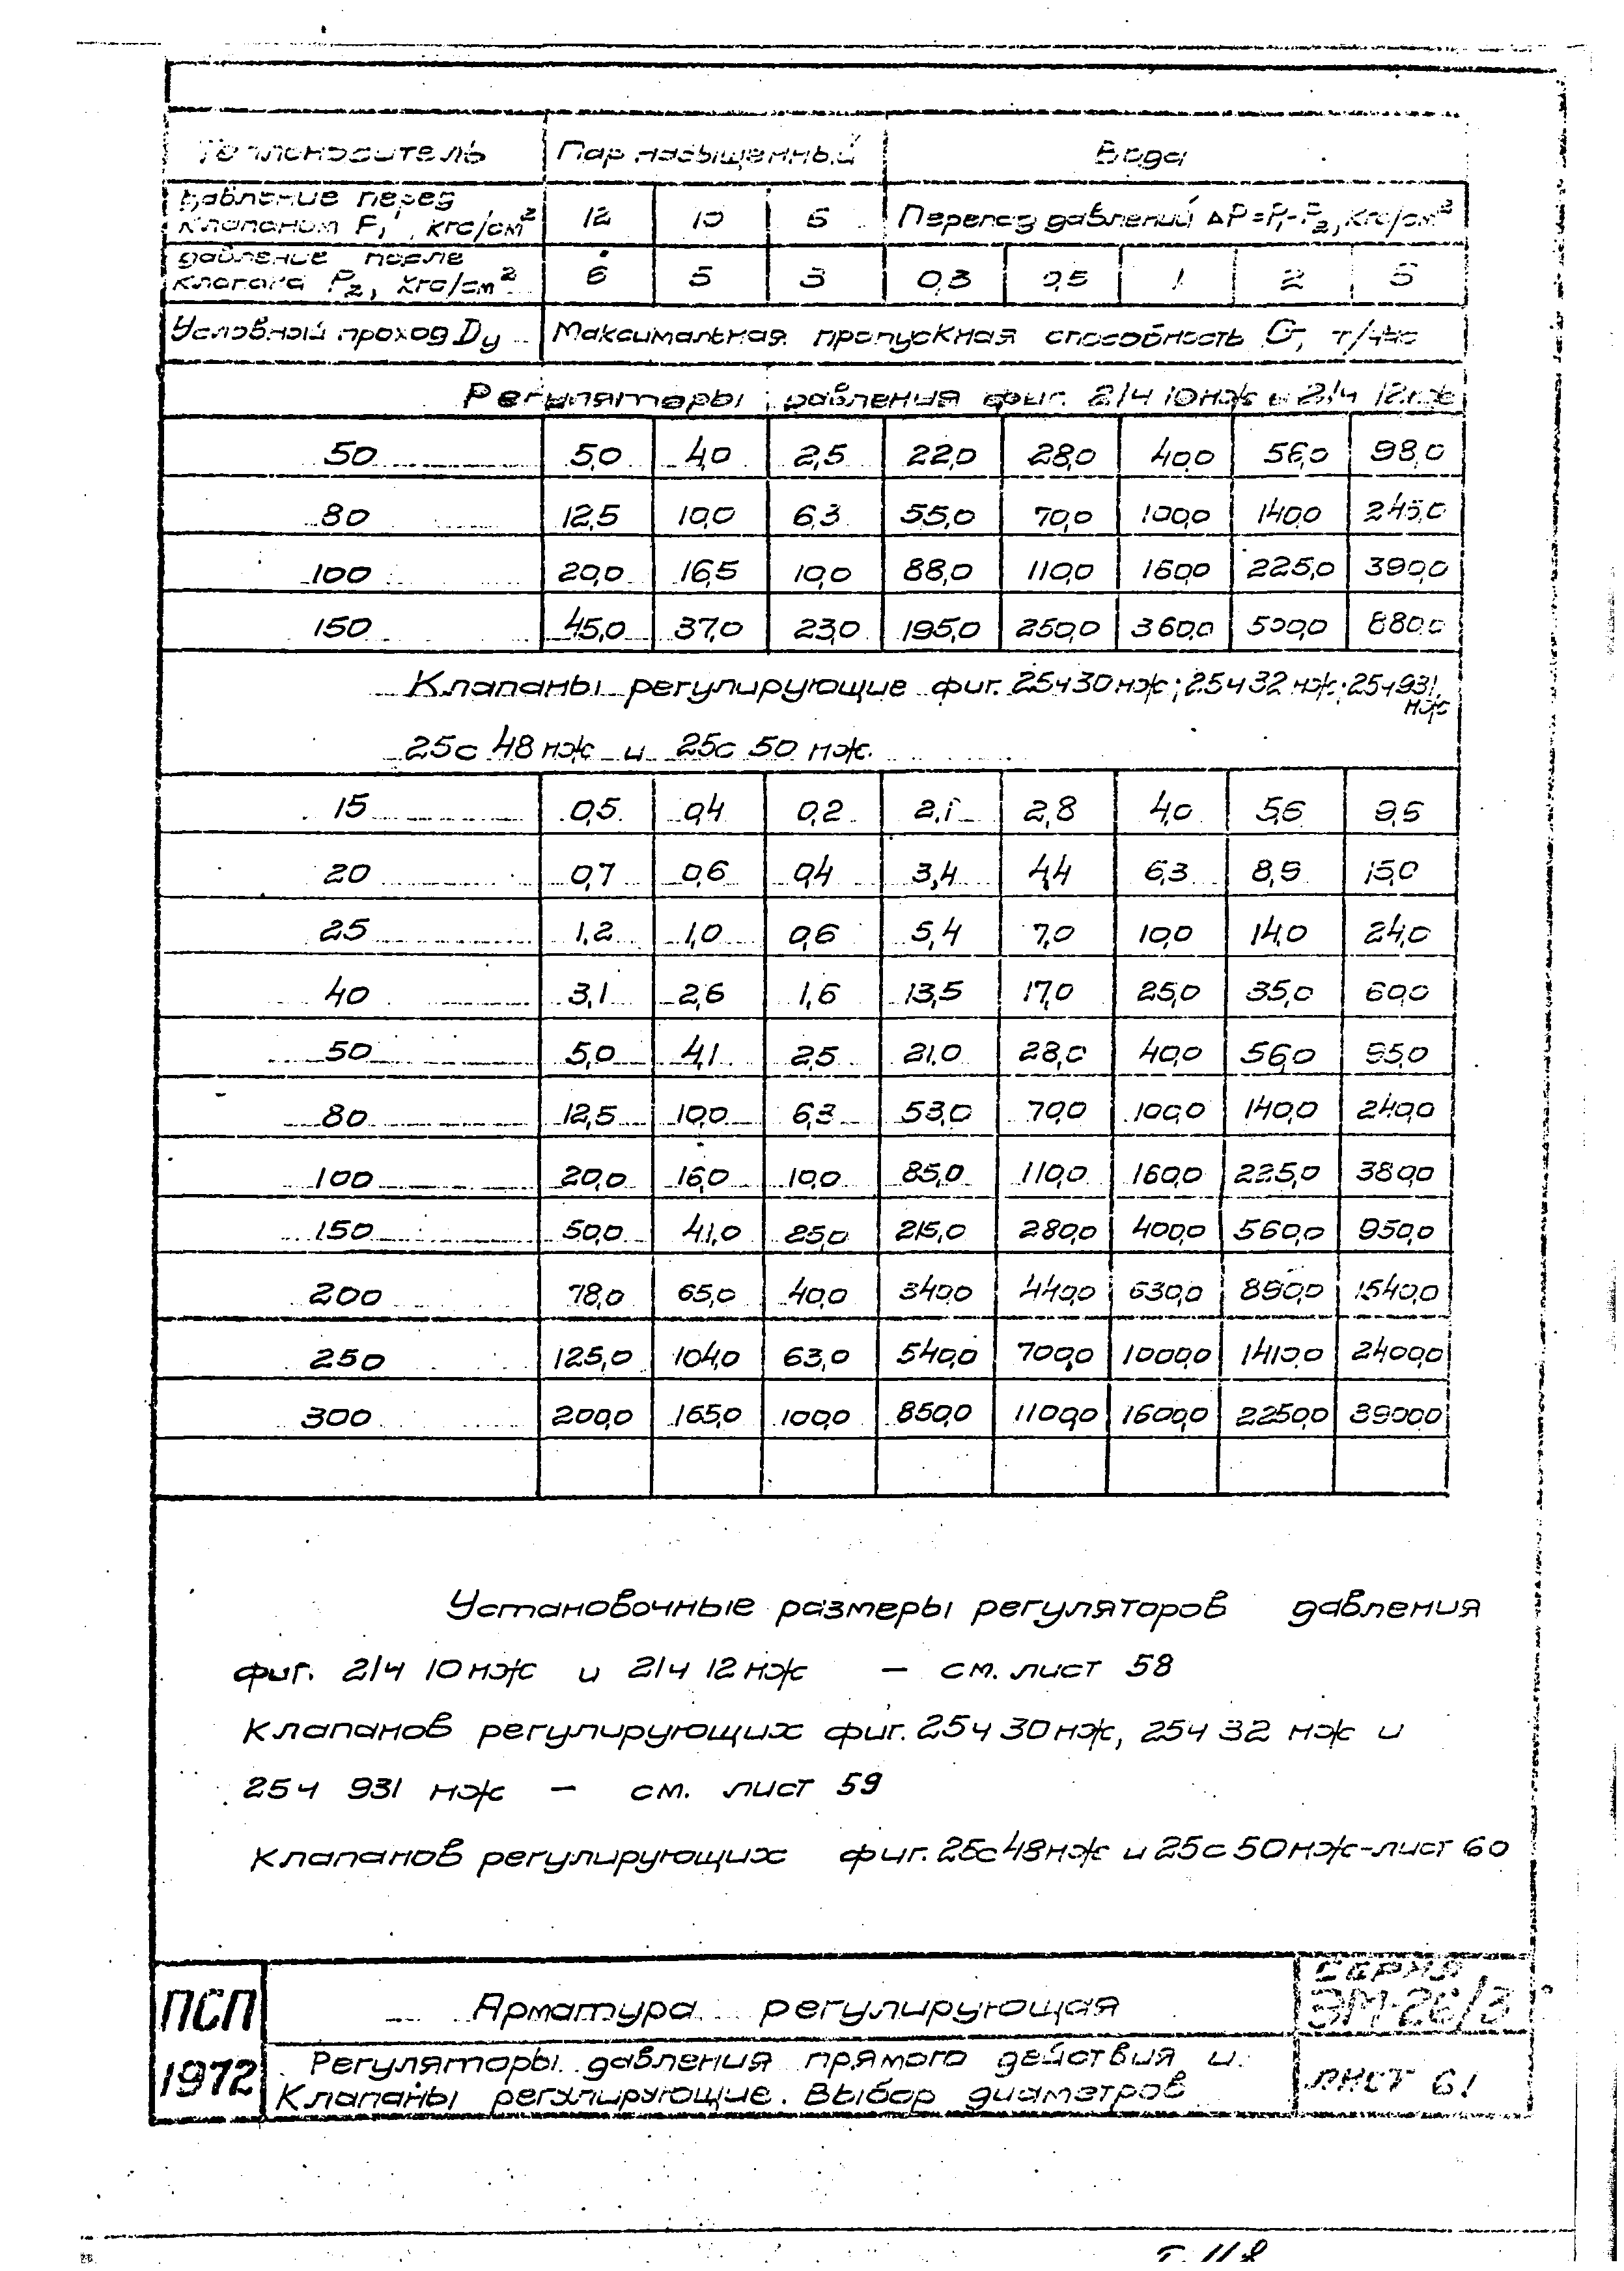 Теплоноситель Пар насыщенный Вода
Давление перед
клапаном P₁, кгс/см² 12 10 6 Перепад давлений ΔP=P₁-P₂, кгс/см²
давление после
клапана P₂, кгс/см² 6 5 3 0,3 0,5 1 2 5
Условный проход Dу Максимальная пропускная способность G, т/час
Регуляторы давления фиг. 21ч 10нж и 21ч 12нж
50 5,0 4,0 2,5 22,0 28,0 40,0 56,0 98,0
80 12,5 10,0 6,3 55,0 70,0 100,0 140,0 245,0
100 20,0 16,5 10,0 88,0 110,0 160,0 225,0 390,0
150 45,0 37,0 23,0 195,0 250,0 360,0 500,0 880,0
Клапаны регулирующие фиг. 25ч30нж; 25ч32 нж; 25ч931
нж
25с 48 нж и 25с 50 нж.
15 0,5 0,4 0,2 2,1 2,8 4,0 5,6 9,5
20 0,7 0,6 0,4 3,4 4,4 6,3 8,9 15,0
25 1,2 1,0 0,6 5,4 7,0 10,0 14,0 24,0
40 3,1 2,6 1,6 13,5 17,0 25,0 35,0 60,0
50 5,0 4,1 2,5 21,0 28,0 40,0 56,0 95,0
80 12,5 10,0 6,3 53,0 70,0 100,0 140,0 240,0
100 20,0 16,0 10,0 85,0 110,0 160,0 225,0 380,0
150 50,0 41,0 25,0 215,0 280,0 400,0 560,0 950,0
200 78,0 65,0 40,0 340,0 440,0 630,0 890,0 1540,0
250 125,0 104,0 63,0 540,0 700,0 1000,0 1410,0 2400,0
300 200,0 165,0 100,0 850,0 1100,0 1600,0 2250,0 3900,0
Установочные размеры регуляторов давления
фиг. 21ч 10 нж и 21ч 12 нж — см. лист 58
Клапанов регулирующих фиг. 25ч 30 нж, 25ч 32 нж и
25ч 931 нж — см. лист 59
Клапанов регулирующих фиг. 25с48нж и 25с 50 нж-лист 60
ПСП Арматура регулирующая серия
ЭМ-26/3
1972 Регуляторы давления прямого действия и
Клапаны регулирующие. Выбор диаметров лист 61